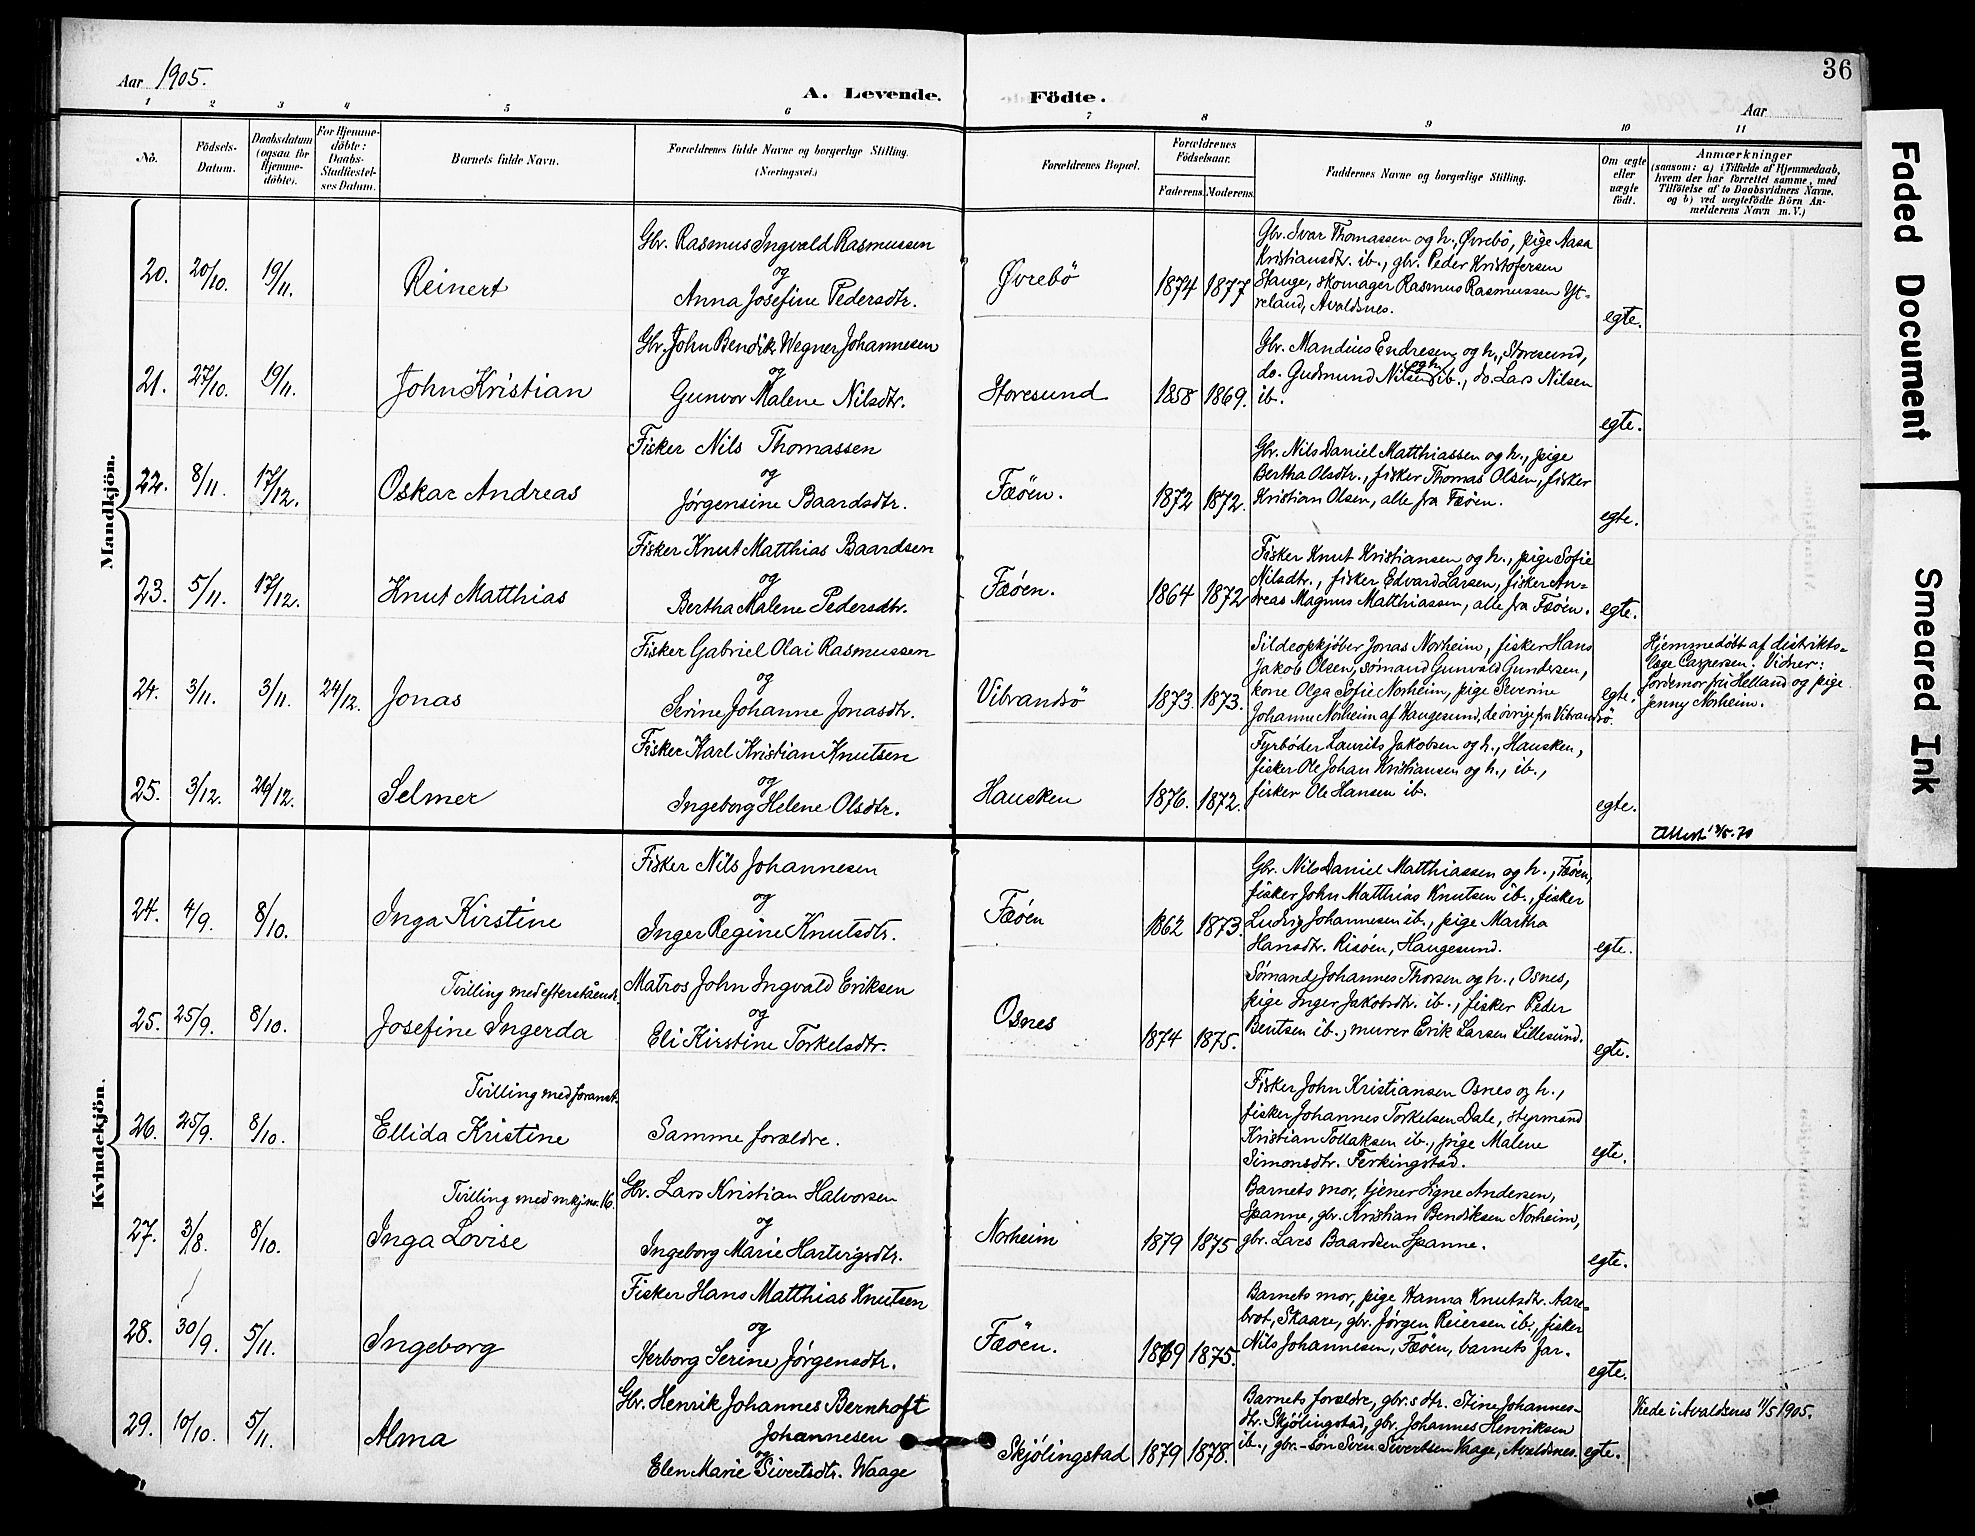 36
Aar 1905.
A. Levende. Födte.
Aar
1 2 3 4 5 6 7 8 9 10 11
No.
Födsels-Datum.
Daabsdatum (ogsaa for Hjemme-döbte).
For Hjemme-döbte: Daabs-Stadfæstel-ses Datum.
Barnets fulde Navn.
Forældrenes fulde Navne og borgerlige Stilling. (Næringsvei.)
Forældrenes Bopæl.
Forældrenes Födselsaar.
Faderens. Moderens.
Faddernes Navne og borgerlige Stilling.
Om ægte eller uægte födt.
Anmærkninger
(saasom: a) i Tilfælde af Hjemmedaab,
hvem der har forrettet samme, med
Tilföielse af to Daabsvidners Navne.
og b) ved uægtefödte Börn An-
melderens Navn m. V.)
Mandkjön.
20. 20/10. 19/11. Reinert
Gbr. Rasmus Ingvald Rasmussen
og
Anna Josefine Pedersdtr.
Øvrebö 1874 1877
Gbr. Ivar Thomassen og h., Øvrebö, pige Aasa
Kristiansdtr. ib., gbr. Peder Kristofersen
Stange, skomager Rasmus Rasmussen Yt-
reland, Avaldsnes.
egte.
21. 27/10. 19/11. John Kristian
Gbr. John Bendik Wegner Johannesen
og
Gunvor Malene Nilsdtr.
Storesund 1858 1869.
Gbr. Mandius Endresen og h., Storesund,
do. Gudmund Nilsen og h. ib., do. Lars Nilsen
ib.
egte.
22. 8/11. 17/12. Oskar Andreas
Fisker Nils Thomassen
og
Jørgensine Baardsdtr.
Fæöen. 1872 1872.
Gbr. Nils Daniel Matthiassen og h., pige
Bertha Olsdtr., fisker Thomas Olsen, fisker
Kristian Olsen, alle fra Fæöen.
egte.
23. 5/11. 17/12. Knut Matthias
Fisker Knut Matthias Baardsen
og
Bertha Malene Pedersdtr.
Fæöen. 1864 1872
Fisker Knut Kristiansen og h., pige Sofie
Nilsdtr., fisker Edvard Larsen, fisker An-
dreas Magnus Matthiassen, alle fra Fæöen.
egte.
24. 3/11. 3/11. 24/12. Jonas
Fisker Gabriel Olai Rasmussen
og
Serine Johanne Jonasdtr.
Vibrandsö 1873. 1873.
Sildeopkjöber Jonas Norheim, fisker Hans
Jakob Olsen, sömand Gunvald Gundersen,
kone Olga Sofie Norheim, pige Severine
Johanne Norheim af Haugesund, de övrige fra Vibrandsö.
egte.
Hjemmedöbt af distrikts-
læge Carpersen. Vidner:
Jordemor fru Helland og pige
Jenny Norheim.
25. 3/12. 26/12. Selmer
Fisker Karl Kristian Knutsen
og
Ingeborg Helene Olsdtr.
Hausken 1876. 1872.
Fyrböder Laurits Jakobsen og h., Hausken,
fisker Ole Johan Kristiansen og h., ib.,
fisker Ole Hansen ib.
egte.
Kvindekjön.
24. 4/9. 8/10. Inga Kirstine
Fisker Nils Johannesen
og
Inger Regine Knutsdtr.
Fæöen 1862 1873.
Gbr. Nils Daniel Matthiassen og h., Fæöen,
fisker John Matthias Knutsen ib., fisker
Ludvig Johannesen ib., pige Martha
Hansdtr. Risöen, Haugesund.
egte.
25. 25/9. 8/10. Tvilling med efterstående.
Josefine Ingerda
Matros John Ingvald Eriksen
og
Eli Kirstine Torkelsdtr.
Osnes 1874 1875.
Sömand Johannes Thorsen og h., Osnes,
pige Inger Jakobsdtr. ib., fisker Peder
Bentsen ib., murer Erik Larsen Lillesund.
egte.
26. 25/9. 8/10. Tvilling med foranst.
Ellida Kristine
Samme forældre.
Fisker John Kristiansen Osnes og h.,
fisker Johannes Torkelsen Dale, styrmand
Kristian Tollaksen ib., pige Malene
Simonsdtr. Ferkingstad.
egte.
27. 3/8. 8/10. Tvilling med mkj. nr. 16.
Inga Lovise
Gbr. Lars Kristian Halvorsen
og
Ingeborg Marie Hartvigsdtr.
Norheim 1879 1875
Barnets mor, tjener Signe Andersen,
Spanne, gbr. Kristian Bendiksen Norheim,
gbr. Lars Baardsen Spanne.
egte.
28. 30/9. 5/11. Ingeborg
Fisker Hans Matthias Knutsen
og
Nerborg Serine Jørgensdtr.
Fæöen. 1869 1875.
Barnets mor, pige Hanna Knutsdtr. Aare-
brot, Skaare, gbr. Jørgen Reiersen ib., fisker
Nils Johannesen, Fæöen, barnets far.
egte.
29. 10/10. 5/11. Alma
Gbr. Henrik Johannes Bernhoft
Johannesen
og
Elen Marie Sivertsdtr. Waage
Skjölingstad 1879 1878.
Barnets forældre, gbr.s dtr. Stine Johannes-
dtr. Skjölingstad, gbr. Johannes Henriksen
ib., gbr.-sön Sven Sivertsen Vaage, Avaldsnes.
egte.
Viede i Avaldsnes 11/5 1905.
Faded Document
Smeared Ink